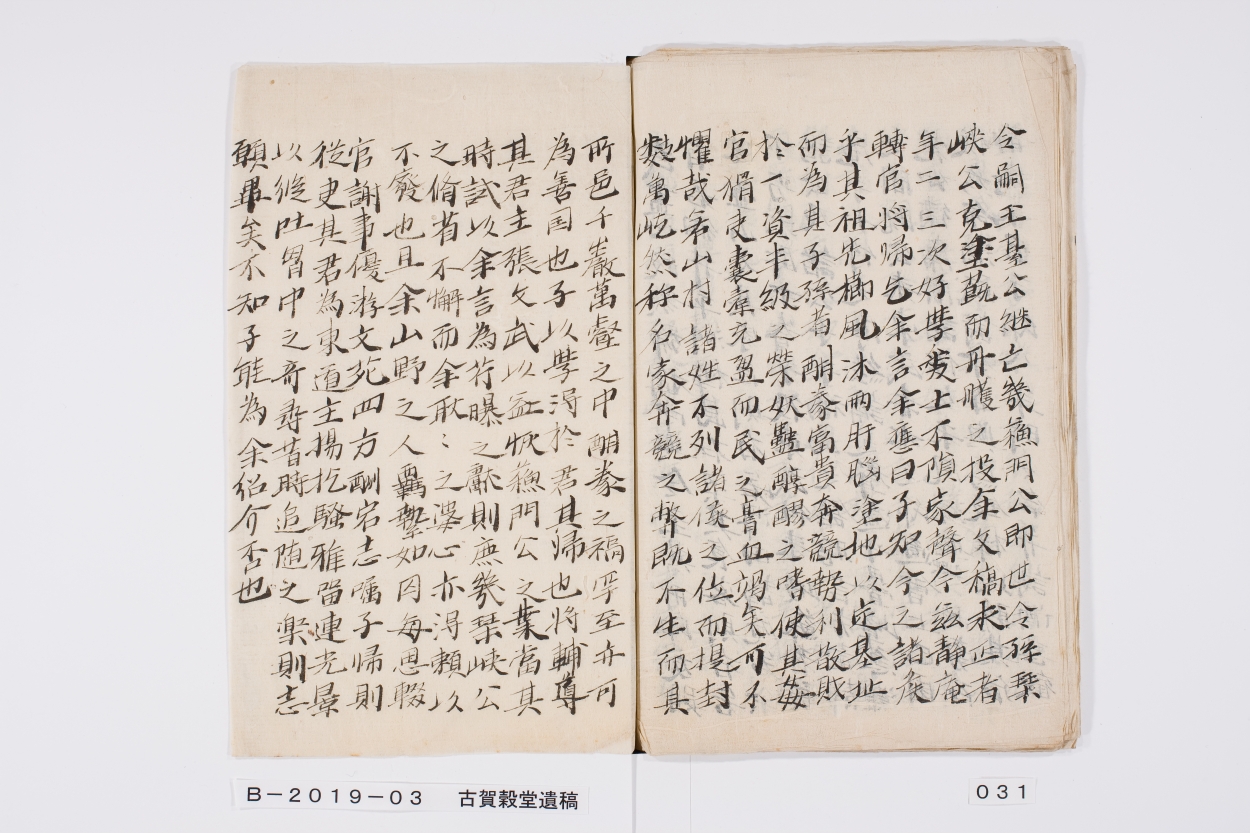 令嗣主基公継亡幾蘓門公即世令孫琹
峽公克塗蓺而丹雘之投余文稿求正者
年二三次好學愛士不隕家聲今茲靜庵
轉官将帰乞余言余應曰子知今之諸矦
乎其祖先櫛風沐雨肝腦塗地以定基址
而為其子孫者酣豢富貴奔競勢利散財
於一資半級之榮妖蠱醇醪之嗜使其姦
官猾吏囊槖充盈而民之膏血竭矣可不
懼哉君山村諸姓不列諸侯之位而提封
數萬屹然称名家奔競之弊既不生而其
所邑千巌萬壑之中酣豢之禍罕至亦可
為善国也子以學淂於君其帰也将輔導
其君主張文武以益恢蘓門公之業當其
時試以余言為芹曝之獻則庶幾琹峽公
之脩者不懈而余耿〻之婆心亦淂頼以
不廢也且余山野之人羈縶如囚毎思輟
官謝事優游文苑四方酬宕志嘱子帰則
從吏其君為東道主揚扢騷雅畱連光景
以縱吐胷中之奇尋昔時追随之楽則志
願畢矣不知子能為余绍介否也
B－2019－03　古賀穀堂遺稿
031